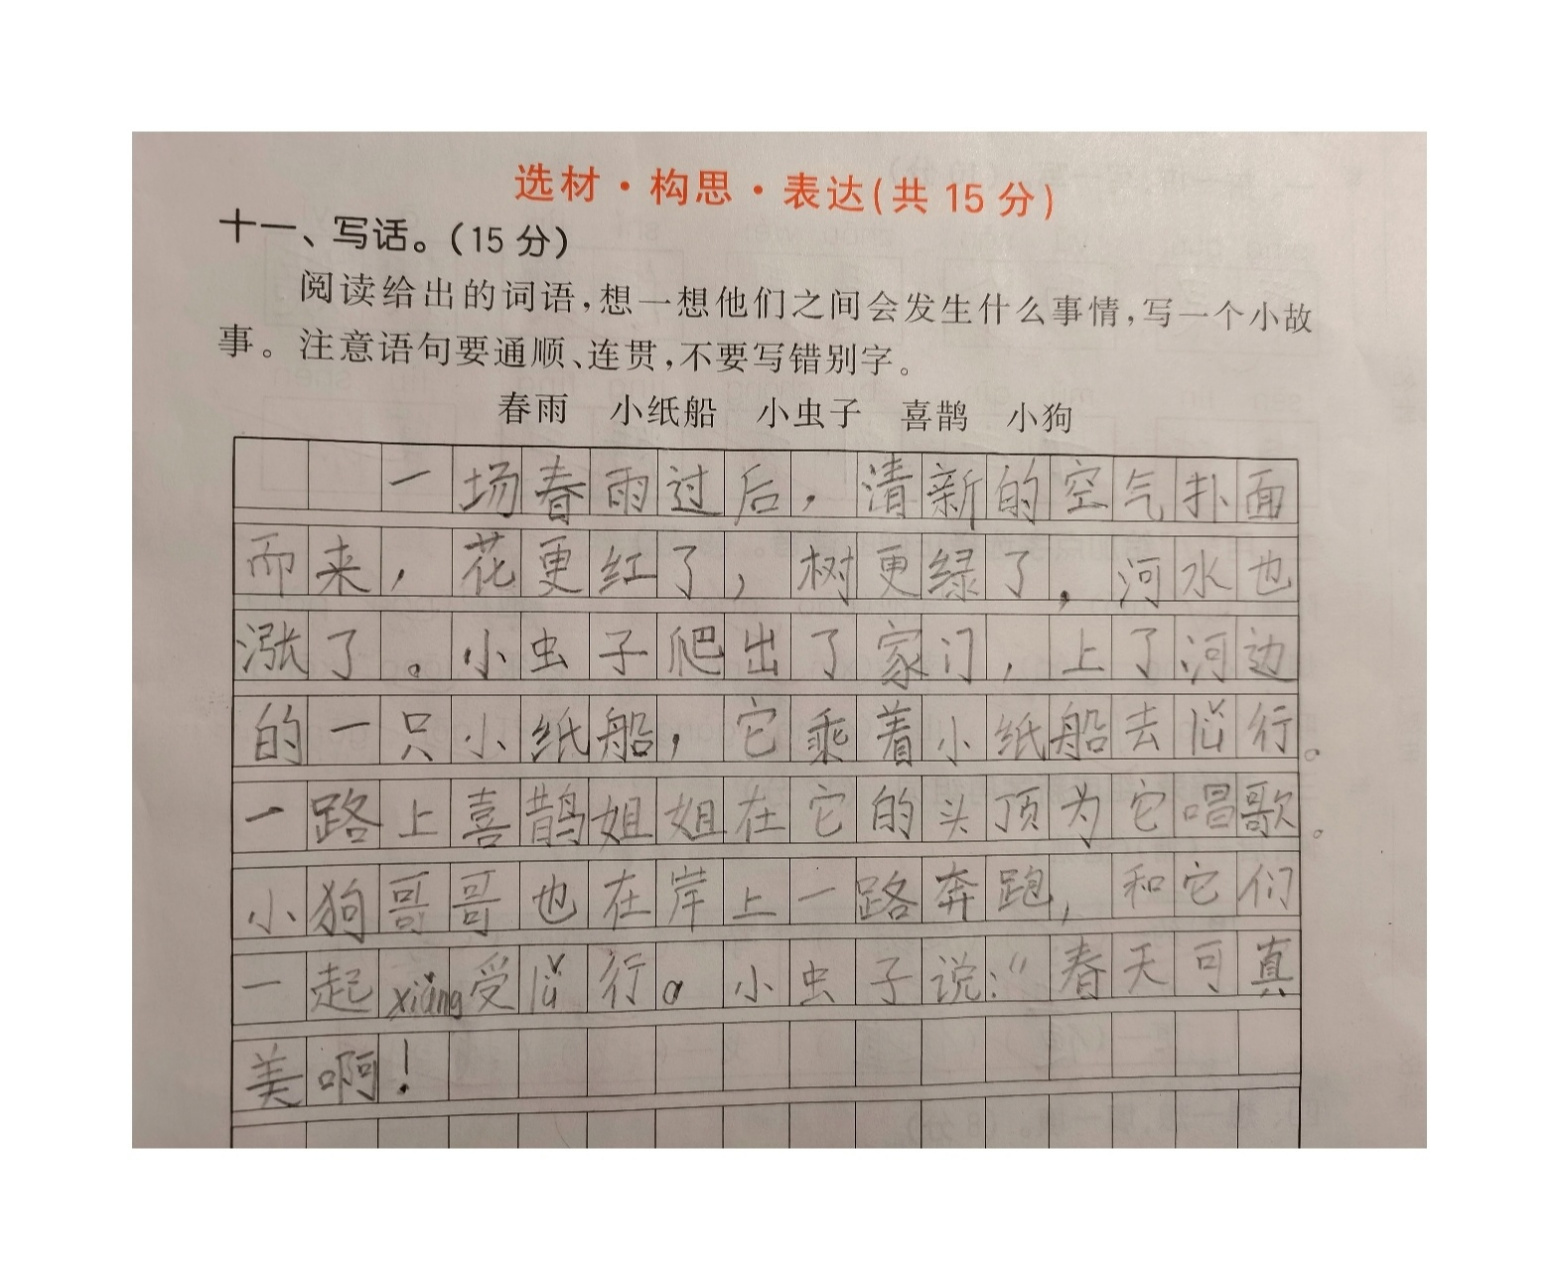 选材·构思·表达(共 15 分)
十一、写话。(15 分)
阅读给出的词语,想一想他们之间会发生什么事情,写一个小故
事。注意语句要通顺、连贯,不要写错别字。
春雨 小纸船 小虫子 喜鹊 小狗
一场春雨过后，清新的空气扑面
而来，花更红了，树更绿了，河水也
涨了。小虫子爬出了家门，上了河边
的一只小纸船，它乘着小纸船去lǚ行。
一路上喜鹊姐姐在它的头顶为它唱歌。
小狗哥哥也在岸上一路奔跑，和它们
一起xiǎng受lǚ行。小虫子说：“春天可真
美啊！